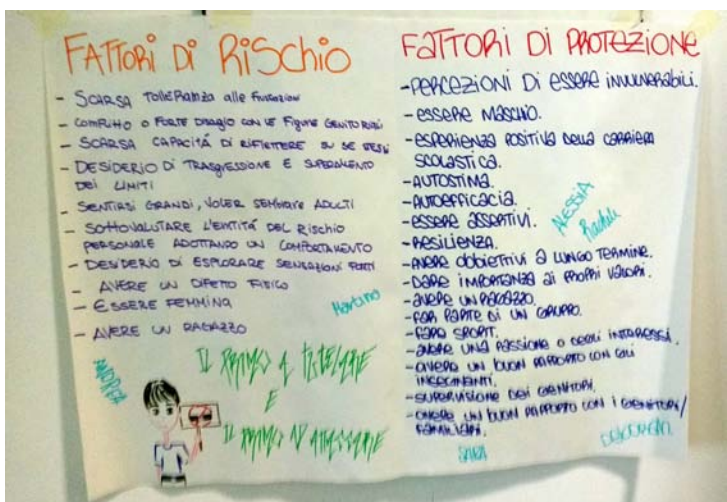 FATTORI DI RISCHIO
- SCARSA TOLLERANZA ALLE FRUSTRAZIONI
- CONFLITTO O FORTE DISAGIO CON LE FIGURE GENITORIALI
- SCARSA CAPACITÁ DI RIFLETTERE SU SE STESSI
- DESIDERIO DI TRASGRESSIONE E SUPERAMENTO
DEI LIMITI
- SENTIRSI GRANDI, VOLER SEMBRARE ADULTI
- SOTTOVALUTARE L'ENTITÁ DEL RISCHIO
PERSONALE ADOTTANDO UN COMPORTAMENTO
- DESIDERIO DI ESPLORARE SENSAZIONI FORTI
- AVERE UN DIFETTO FISICO
- ESSERE FEMMINA
- AVERE UN RAGAZZO
Martino
ANDREA
IL PRIMO A
E
IL PRIMO AD
FATTORI DI PROTEZIONE
- PERCEZIONI DI ESSERE INVULNERABILI.
- ESSERE MASCHIO.
- ESPERIENZA POSITIVA DELLA CARRIERA
SCOLASTICA.
- AUTOSTIMA.
- AUTOEFFICACIA.
- ESSERE ASSERTIVI.
- RESILIENZA.
- AVERE OBBIETTIVI A LUNGO TERMINE.
- DARE IMPORTANZA AI PROPRI VALORI.
- AVERE UN RAGAZZO.
- FAR PARTE DI UN GRUPPO.
- FARE SPORT.
- AVERE UNA PASSIONE O DEGLI INTERESSI.
- AVERE UN BUON RAPPORTO CON GLI
INSEGNANTI.
- SUPERVISIONE DEI GENITORI.
- AVERE UN BUON RAPPORTO CON I GENITORI/
FAMILIARI.
ALESSIA
Rachele
SARA